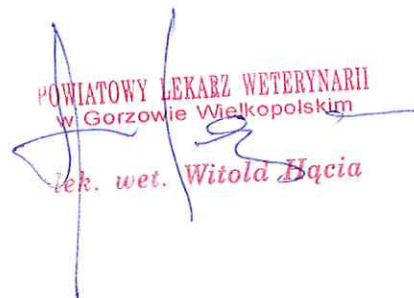 POWIATOWY LEKARZ WETERYNARII
w Gorzowie Wielkopolskim
lek. wet. Witold Hącia